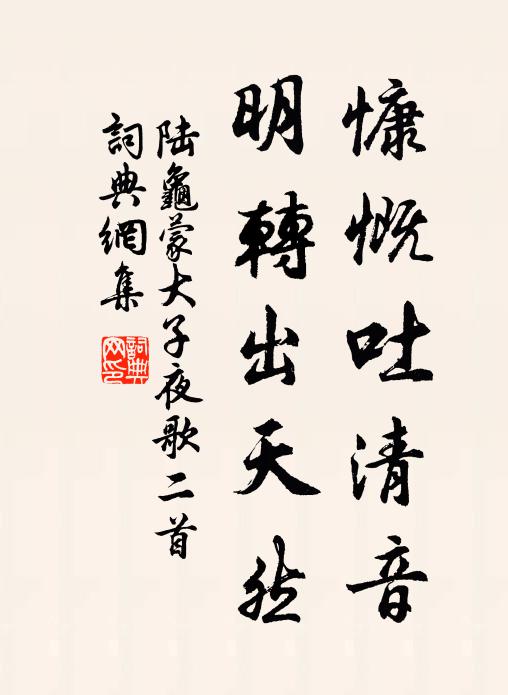 慷慨吐清音
明轉出天然
陸龜蒙大子夜歌二首
詞典網集
詞典
网印